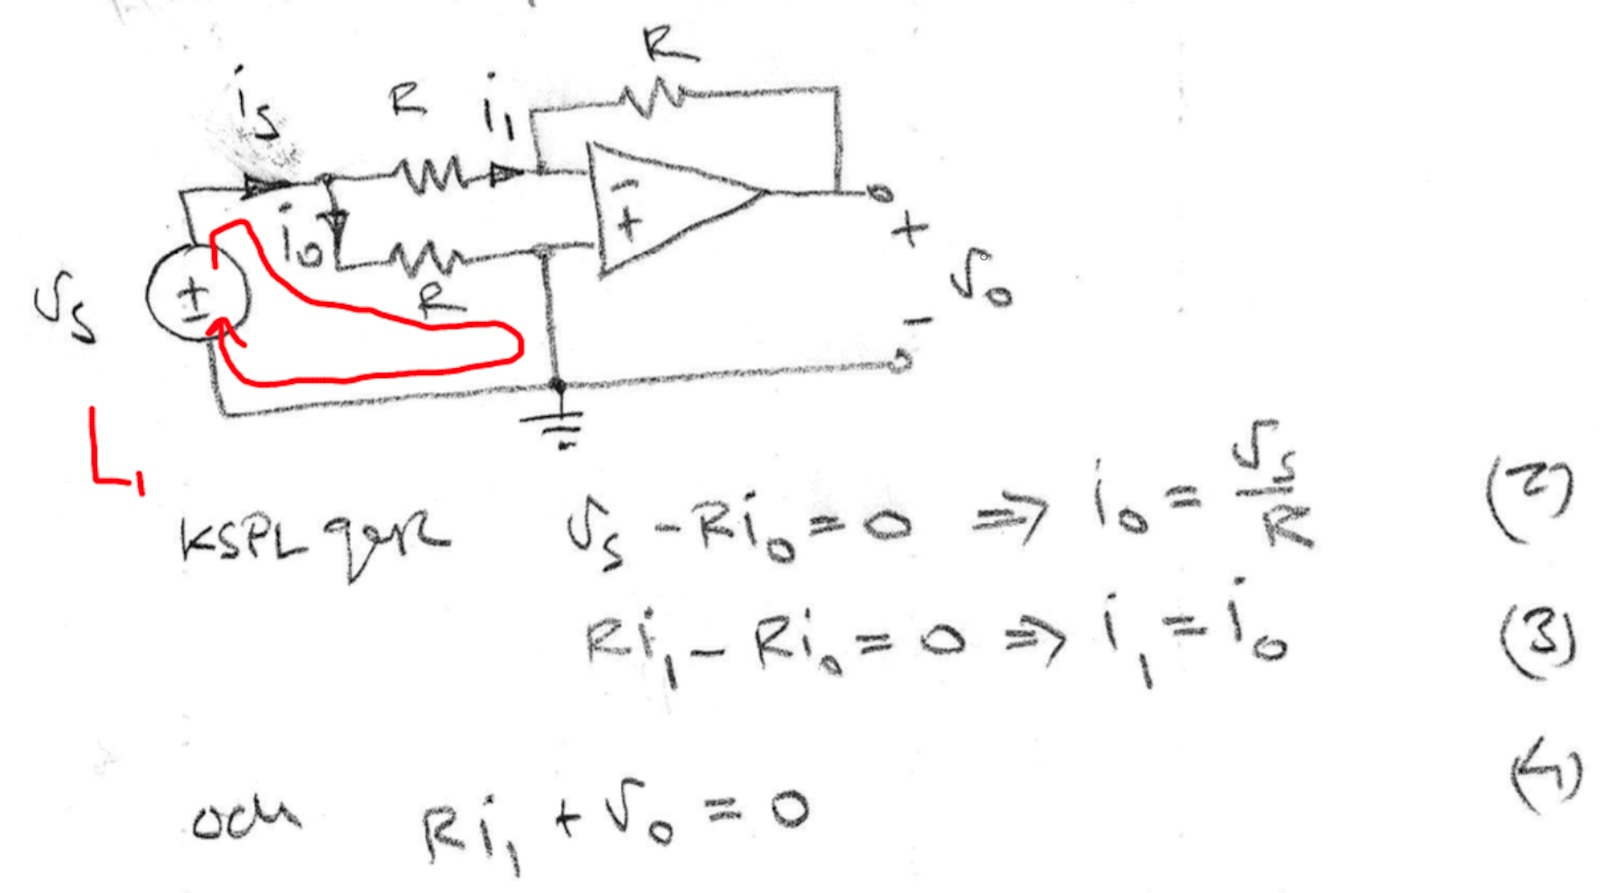 R
i_s R i_1
i_0
R
−
+
v_s ±
+
v_0
−
L_1
KSPL ger v_s − Ri_0 = 0 ⇒ i_0 = v_s/R (2)
Ri_1 − Ri_0 = 0 ⇒ i_1 = i_0 (3)
(4)
och Ri_1 + v_0 = 0